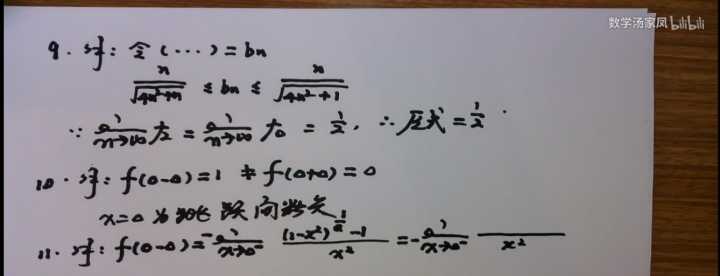 数学汤家凤 bilibili
9. 解: 令(⋯) = bn
n/√(4n²+n) ≤ bn ≤ n/√(4n²+1)
∵ lim n→∞ 左 = lim n→∞ 右 = 1/2, ∴ 原式 = 1/2.
10. 解: f(0-0) = 1 ≠ f(0+0) = 0
x=0 为跳跃间断点
11. 解: f(0-0) = - lim x→0⁻ ((1-x²)^ -1)/x² = - lim x→0⁻ /x²